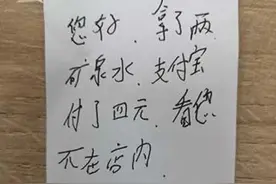 您好，拿了两
矿泉水，支付宝
付了四元，看您
不在店内，